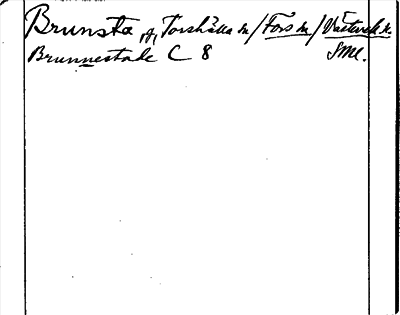 Brunsta, Torshälla sn / Fors sn / Västerrek. h.
Brunnestade C 8 Sml.